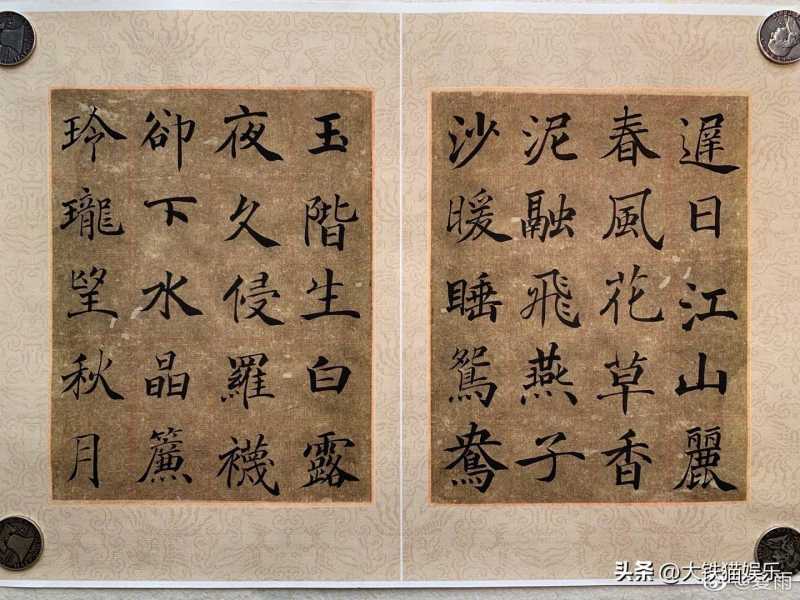 遲日江山麗
春風花草香
泥融飛燕子
沙暖睡鴛鴦
玉階生白露
夜久侵羅襪
卻下水晶簾
玲瓏望秋月
头条 @大铁猫娱乐